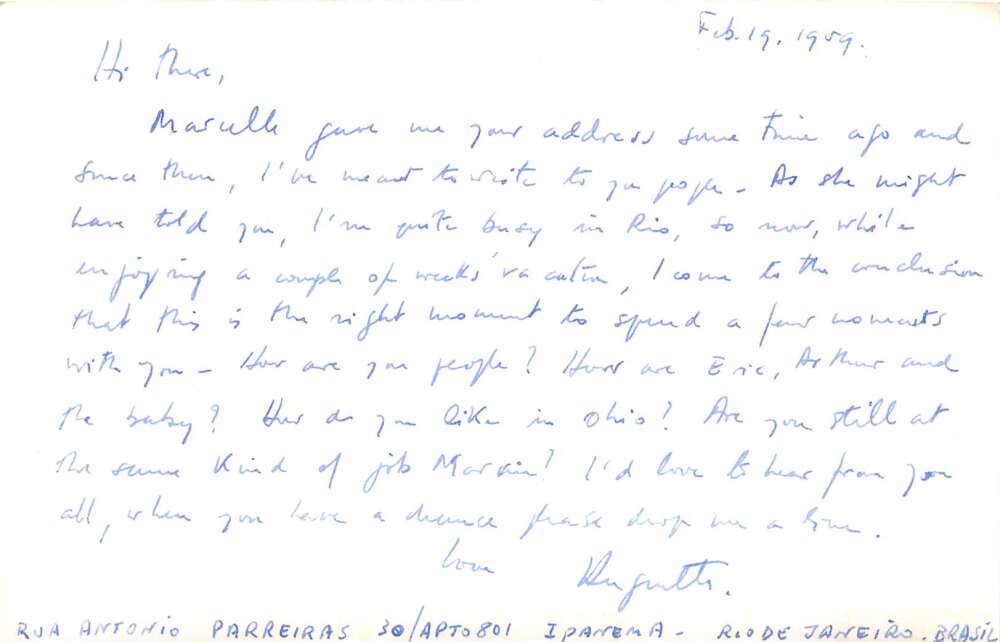 Feb. 19, 1959.
Hi there,
Marcelle gave me your address some time ago and
since then, I've meant to write to you people - As she might
have told you, I'm quite busy in Rio, so now, while
enjoying a couple of weeks' vacation, I come to the conclusion
that this is the right moment to spend a few moments
with you - How are you people? How are Eric, Arthur and
the baby? How do you like in Ohio? Are you still at
the same kind of job Marvin? I'd love to hear from you
all, when you have a chance please drop me a line.
Love Huguette.
RUA ANTONIO PARREIRAS 30/APTO 801 IPANEMA - RIO DE JANEIRO. BRASIL